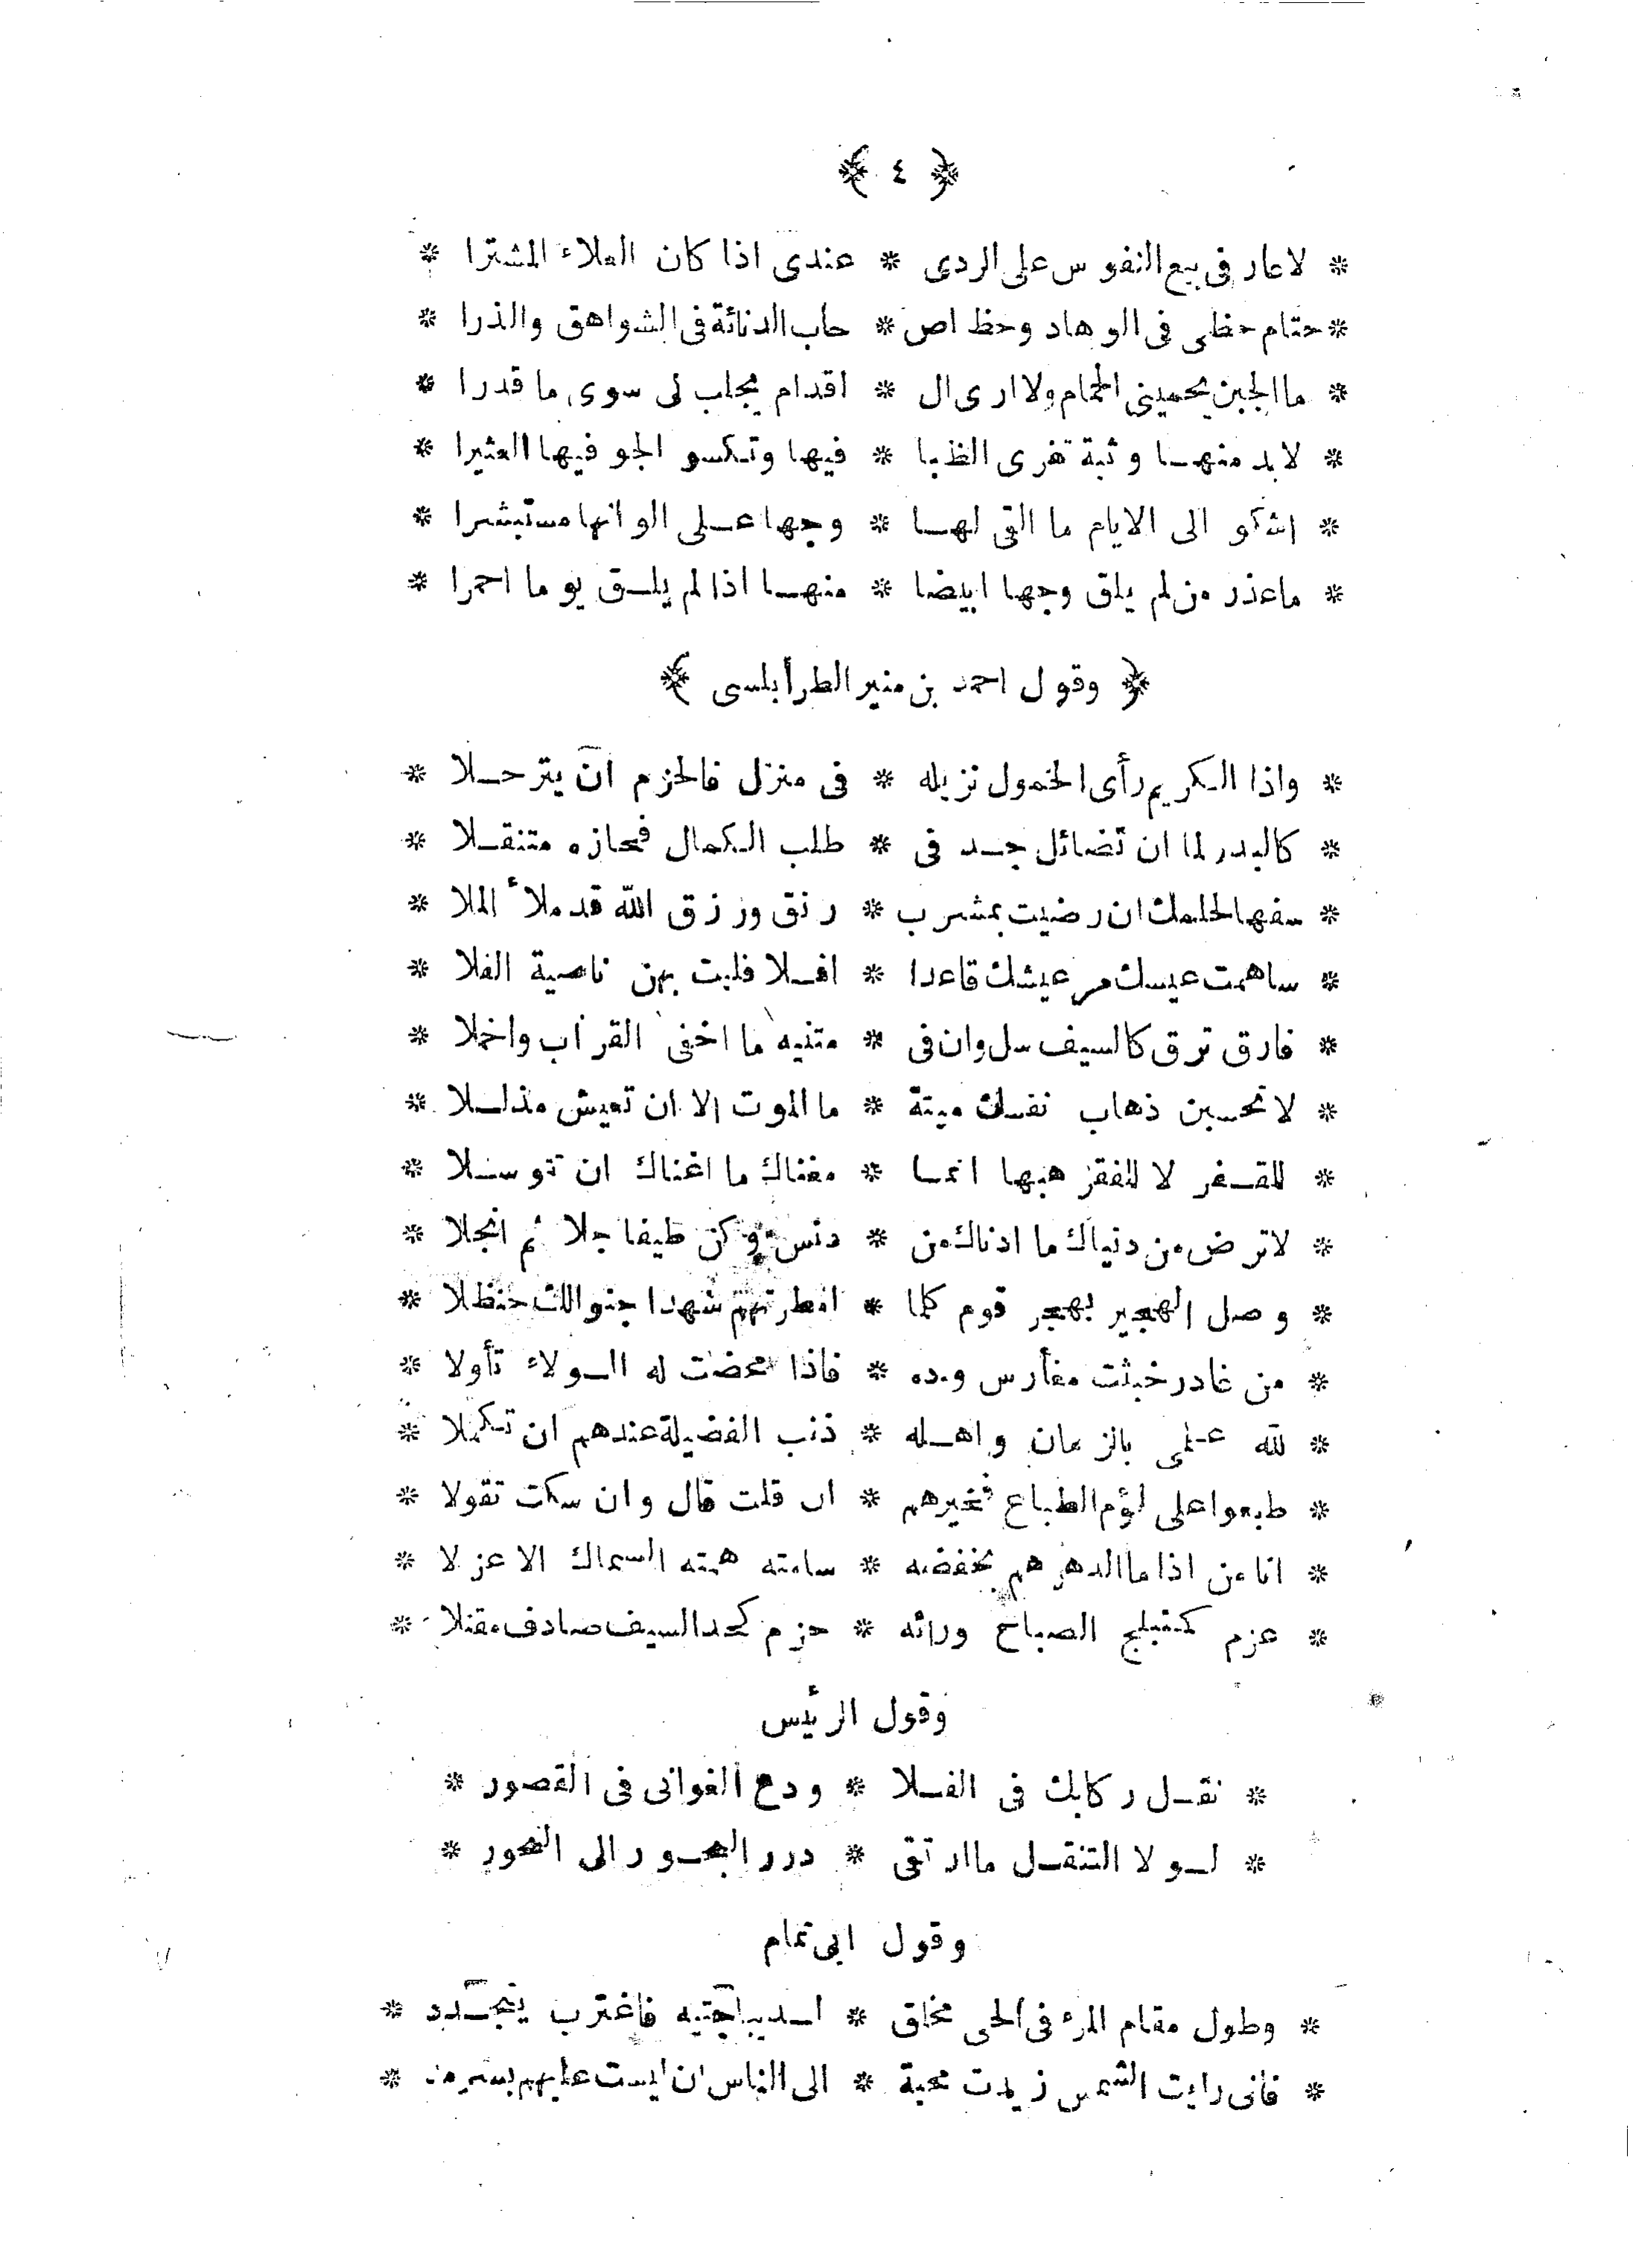 ﴿ ٤ ﴾
* لاعار فى بيع النفوس على الردى * عندى اذا كان العلاء المشترا *
* حتام حظى فى الوهاد وحظ اص * حاب الدنائة فى الشواهق والذرا *
* ما الجبن يحمينى الحمام ولا ارى ال * اقدام يجلب لى سوى ما قدرا *
* لابد منها وثبة تفرى الظبا * فيها وتكسو الجو فيها العثيرا *
* اشكو الى الايام ما القى لها * وجها على الوانها مستبشرا *
* ماعذر من لم يلق وجها ابيضا * منها اذا لم يلق يوما احمرا *
﴿ وقول احمد بن منير الطرابلسى ﴾
* واذا الكريم رأى الخمول نزيله * فى منزل فالحزم ان يترحلا *
* كالبدر لما ان تضائل جد فى * طلب الكمال فحازه متنقلا *
* سفها لحلمك ان رضيت بمشرب * رنق ورزق الله قد ملأ الملا *
* ساهمت عيسك مر عيشك قاعدا * افلا فليت بهن ناصية الفلا *
* فارق ترق كالسيف سل وان فى * متنيه ما اخفى القراب واخملا *
* لا تحسبن ذهاب نفسك ميتة * ما الموت الا ان تعيش مذللا *
* للقفر لا للفقر هبها انما * مغناك ما اغناك ان تتوسلا *
* لا ترض من دنياك ما ادناك من * دنس وكن طيفا جلا ثم انجلا *
* وصل الهجير بهجر قوم كلما * امطرتهم شهدا جنوا لك حنظلا *
* من غادر خبثت مغارس وده * فاذا محضت له الولاء تأولا *
* لله علمى بالزمان واهله * ذنب الفضيلة عندهم ان تكملا *
* طبعوا على لؤم الطباع فخيرهم * ان قلت قال وان سكت تقولا *
* انا من اذا ما الدهر هم بخفضه * سامته همته السماك الاعزلا *
* عزم كمنبلج الصباح ورائه * حزم كحد السيف صادف مقتلا *
وقول الرئيس
* نقل ركابك فى الفلا * ودع الغوانى فى القصور *
* لولا التنقل ما ارتقى * درر البحور الى النحور *
وقول ابى تمام
* وطول مقام المرء فى الحى مخلق * لديباجتيه فاغترب يتجدد *
* فانى رايت الشمس زيدت محبة * الى الناس ان ليست عليهم بسرمد *